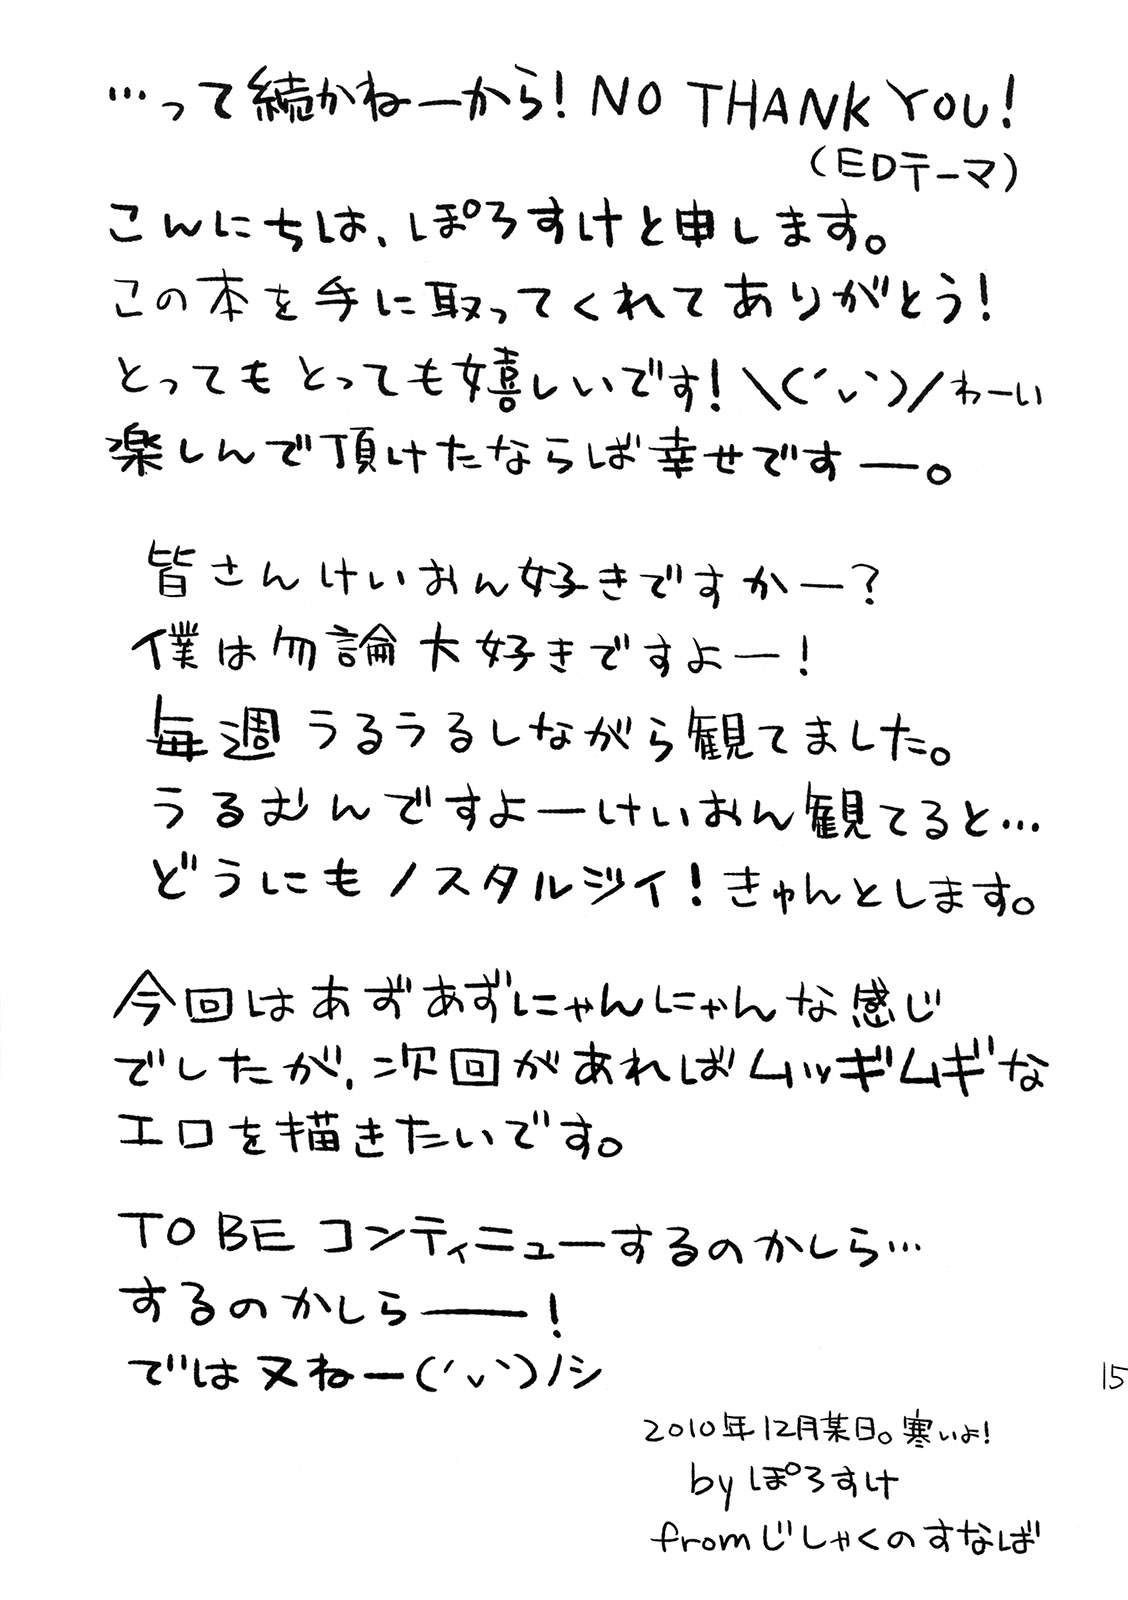 …って続かねーから!NO THANK YOU!
(EDテーマ)
こんにちは、ぽろすけと申します。
この本を手に取ってくれてありがとう!
とってもとっても嬉しいです!\(´ヮ`)/わーい
楽しんで頂けたならば幸せですー。
皆さんけいおん好きですかー?
僕は勿論大好きですよー!
毎週うるうるしながら観てました。
うるむんですよーけいおん観てると…
どうにもノスタルジイ!きゅんとします。
今回はあずあずにゃんにゃんな感じ
でしたが、次回があればムッギムギな
エロを描きたいです。
TO BE コンティニューするのかしら…
するのかしら――!
では又ねー(´ヮ`)ノシ
15
2010年12月某日。寒いよ!
by ぽろすけ
from じしゃくのすなば